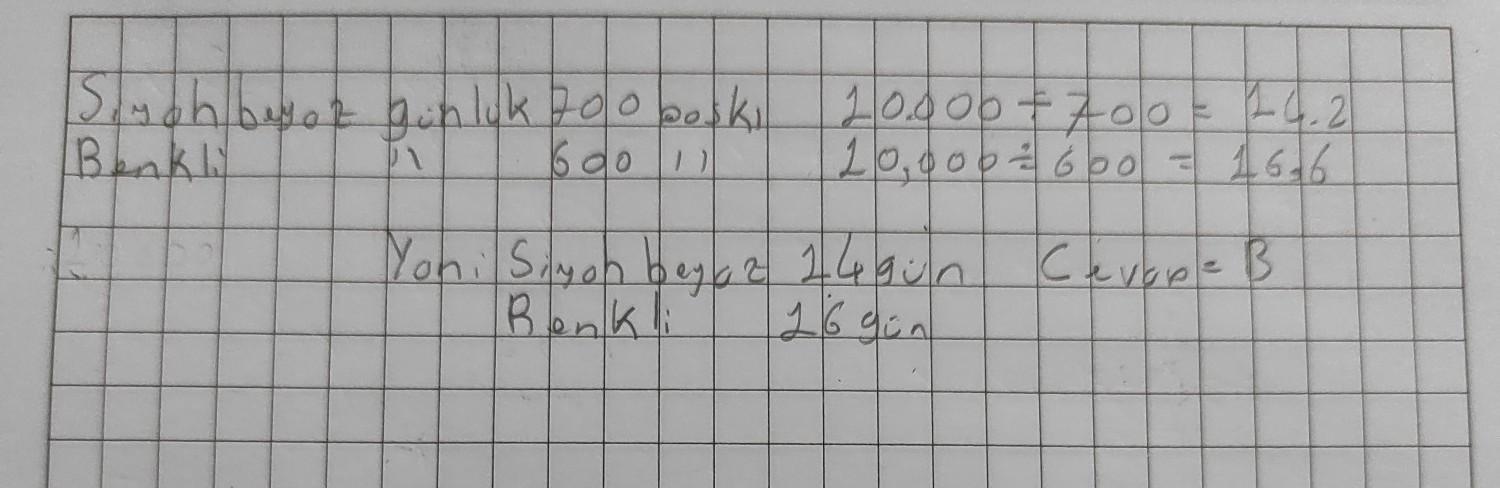 Siyah beyaz günlük 700 baskı 10.000 ÷ 700 = 14.2
Renkli " 600 " 10,000 ÷ 600 = 16.6
Yani Siyah beyaz 14 gün Cevap = B
Renkli 16 gün